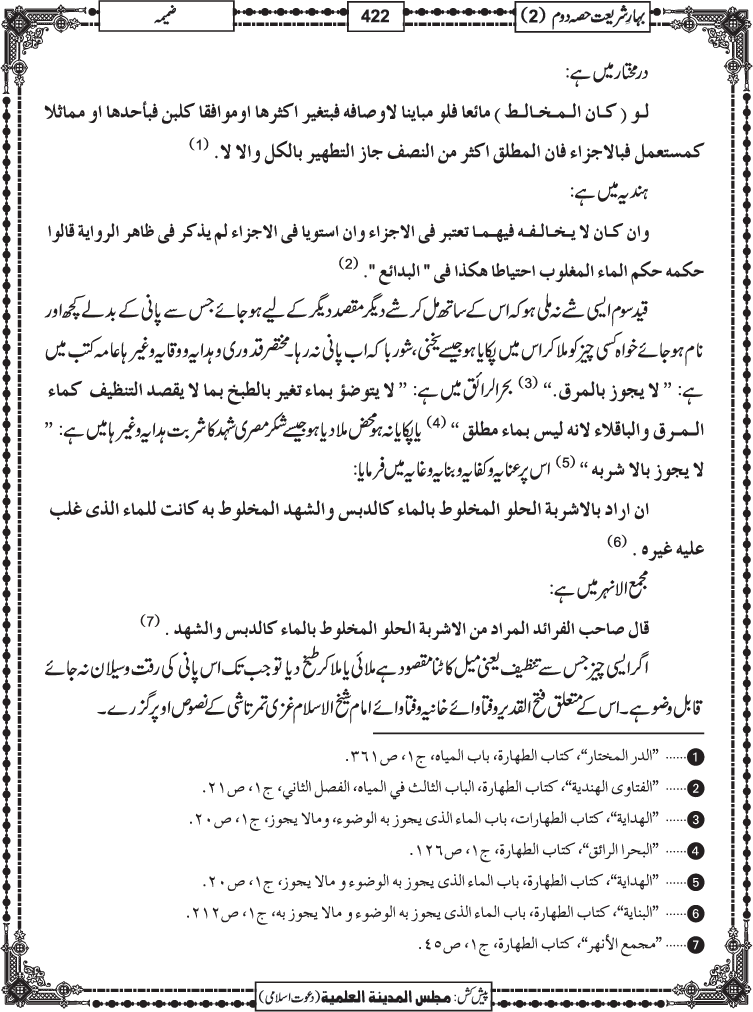 بہارِ شریعت حصہ دوم (2)
422
ضمیمہ
درمختار میں ہے:
لـو ( کـان الـمـخـالـط ) مائعا فلو مباینا لاوصافہ فبتغیر اکثرھا اوموافقا کلبن فبأحدھا او مماثلا
کمستعمل فبالاجزاء فان المطلق اکثر من النصف جاز التطھیر بالکل والا لا. (1)
ہندیہ میں ہے:
وان کـان لا یـخـالـفـہ فیھـمـا تعتبر فی الاجزاء وان استویا فی الاجزاء لم یذکر فی ظاھر الروایة قالوا
حکمہ حکم الماء المغلوب احتیاطا ھکذا فی " البدائع ". (2)
قید سوم ایسی شے نہ ملی ہو کہ اس کے ساتھ مل کر شے دیگر مقصد دیگر کے لیے ہو جائے جس سے پانی کے بدلے کچھ اور
نام ہو جائے خواہ کسی چیز کو ملا کر اس میں پکایا ہو جیسے یخنی، شوربا کہ اب پانی نہ رہا۔ مختصر قدوری و ہدایہ و وقایہ وغیرہا عامہ کتب میں
ہے: ” لا یجوز بالمرق .“ (3) بحر الرائق میں ہے: ” لا یتوضؤ بماء تغیر بالطبخ بما لا یقصد التنظیف کماء
الـمـرق والباقلاء لانہ لیس بماء مطلق “ (4) یا پکایا نہ ہو محض ملا دیا ہو جیسے شکر مصری شہد کا شربت ہدایہ وغیرہا میں ہے: ”
لا یجوز بالا شربہ “ (5) اس پر عنایہ و کفایہ و بنایہ و غایہ میں فرمایا:
ان اراد بالاشربة الحلو المخلوط بالماء کالدبس والشھد المخلوط بہ کانت للماء الذی غلب
علیہ غیرہ . (6)
مجمع الانہر میں ہے:
قال صاحب الفرائد المراد من الاشربة الحلو المخلوط بالماء کالدبس والشھد . (7)
اگر ایسی چیز جس سے تنظیف یعنی میل کاٹنا مقصود ہے ملائی یا ملا کر طبخ دیا تو جب تک اس پانی کی رقت و سیلان نہ جائے
قابل وضو ہے۔ اس کے متعلق فتح القدیر و فتاوائے خانیہ و فتاوائے امام شیخ الاسلام غزی تمرتاشی کے نصوص اوپر گزرے۔
1 ...... ”الدر المختار“، کتاب الطھارة، باب المیاہ، ج۱، ص۳۶۱.
2 ...... ”الفتاوی الھندیة“، کتاب الطھارة، الباب الثالث في المیاہ، الفصل الثاني، ج۱، ص۲۱.
3 ...... ”الھدایة“، کتاب الطھارات، باب الماء الذی یجوز بہ الوضوء، ومالا یجوز، ج۱، ص۲۰.
4 ...... ”البحرا الرائق“، کتاب الطھارة، ج۱، ص۱۲۶.
5 ...... ”الھدایة“، کتاب الطھارة، باب الماء الذی یجوز بہ الوضوء و مالا یجوز، ج۱، ص۲۰.
6 ...... ”البنایة“، کتاب الطھارة، باب الماء الذی یجوز بہ الوضوء و مالا یجوز بہ، ج۱، ص۲۱۲.
7 ...... ”مجمع الأنھر“، کتاب الطھارة، ج۱، ص۴۵.
پیش کش: مجلس المدینة العلمیة (دعوت اسلامی)